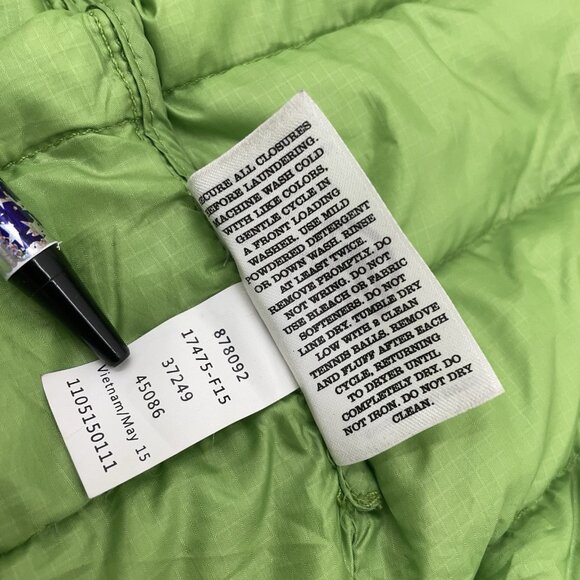 SECURE ALL CLOSURES
BEFORE LAUNDERING.
MACHINE WASH COLD
WITH LIKE COLORS.
GENTLE CYCLE IN
A FRONT LOADING
WASHER. USE MILD
POWDERED DETERGENT
OR DOWN WASH. RINSE
AT LEAST TWICE.
REMOVE PROMPTLY. DO
NOT WRING. DO NOT
USE BLEACH OR FABRIC
SOFTENERS. DO NOT
LINE DRY. TUMBLE DRY
LOW WITH 2 CLEAN
TENIS BALLS. REMOVE
AND FLUFF AFTER EACH
CYCLE, RETURNING
TO DRYER UNTIL
COMPLETELY DRY. DO
NOT IRON. DO NOT DRY
CLEAN.
878092
17475-F15
37249
45086
Vietnam/May 15
1105150111